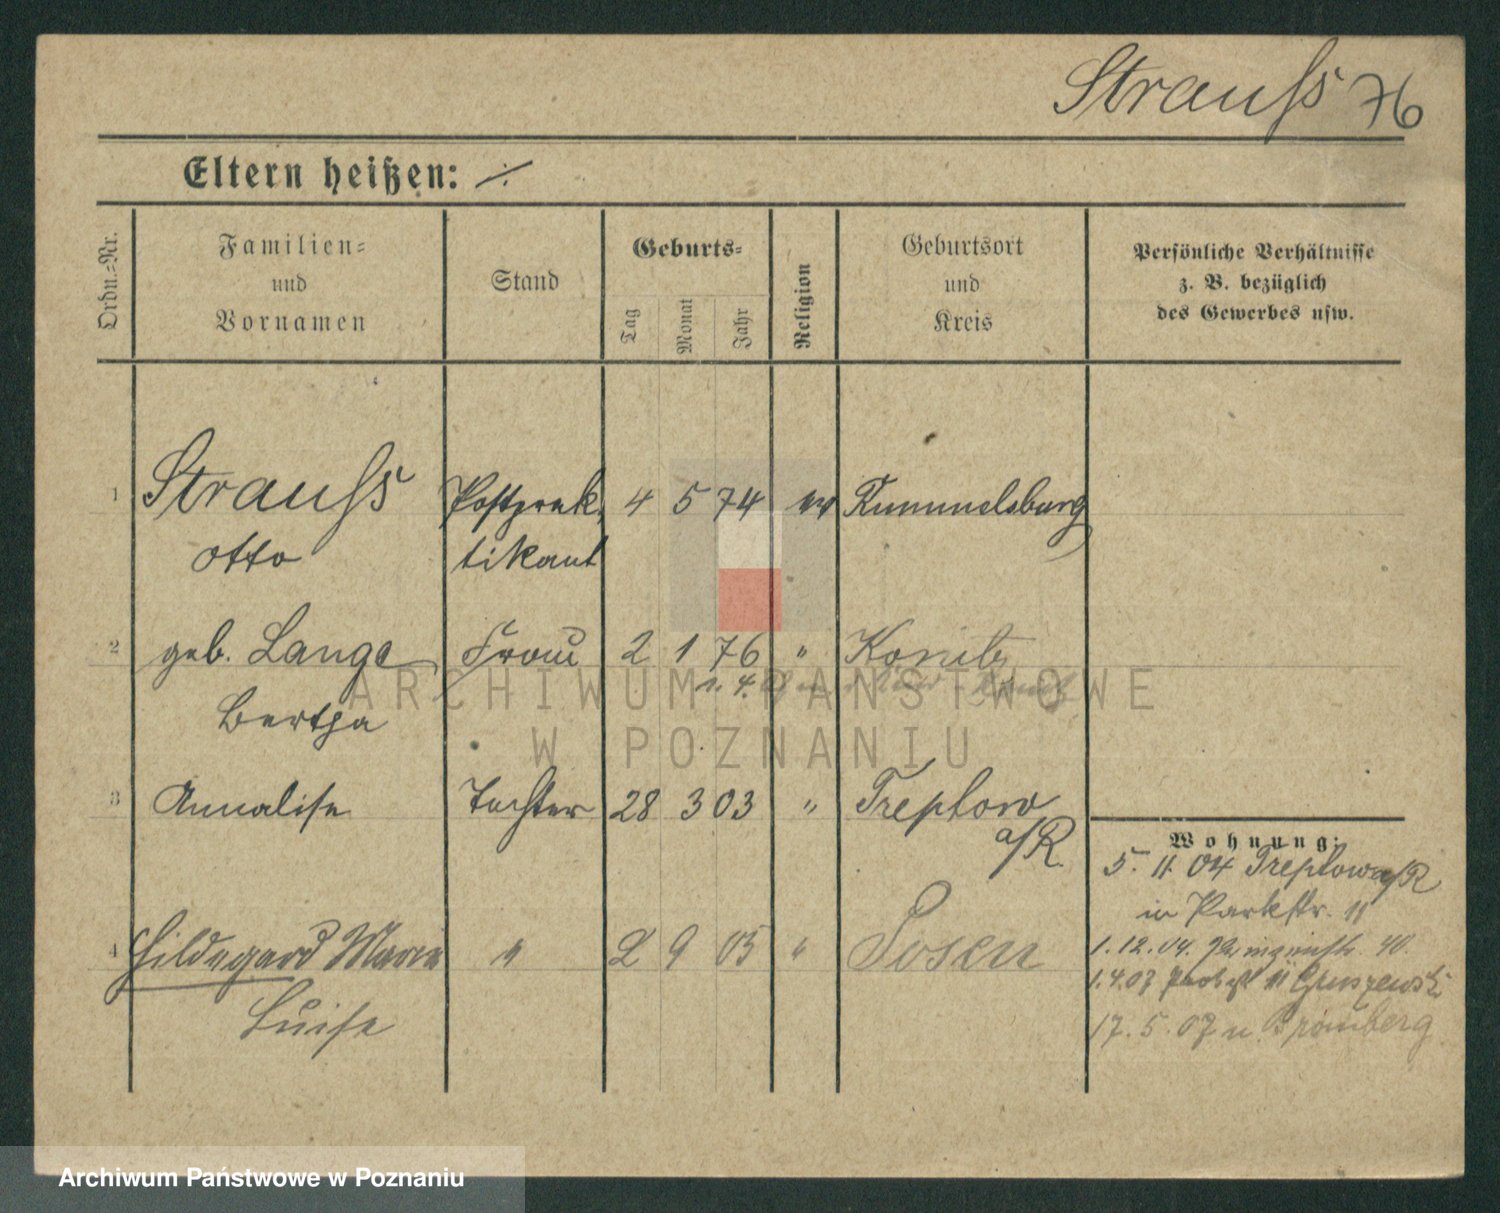 Strauss 76
Eltern heißen: ⁒
Ordn.-Nr.
Familien-
und
Vornamen
Stand
Geburts-
Tag
Monat
Jahr
Religion
Geburtsort
und
Kreis
Persönliche Verhältnisse
z. B. bezüglich
des Gewerbes usw.
1 Strauss Postprak- 4 5 74 ev Rummelsburg
Otto tikant
2 geb. Lange Frau 2 1 76 " Konitz
Bertha
3 Annalise Tochter 28 3 03 " Treptow
a/R.
Wohnung:
5. 11. 04 Treptow a/R
in Parkstr. 11
4 Hildegard Marie " 2 9 05 " Posen
Luise
1.12.04. 40.
1.4.07 11 Gruszewski
17.5.07 n. Bromberg
ARCHIWUM PAŃSTWOWE
W POZNANIU
Archiwum Państwowe w Poznaniu